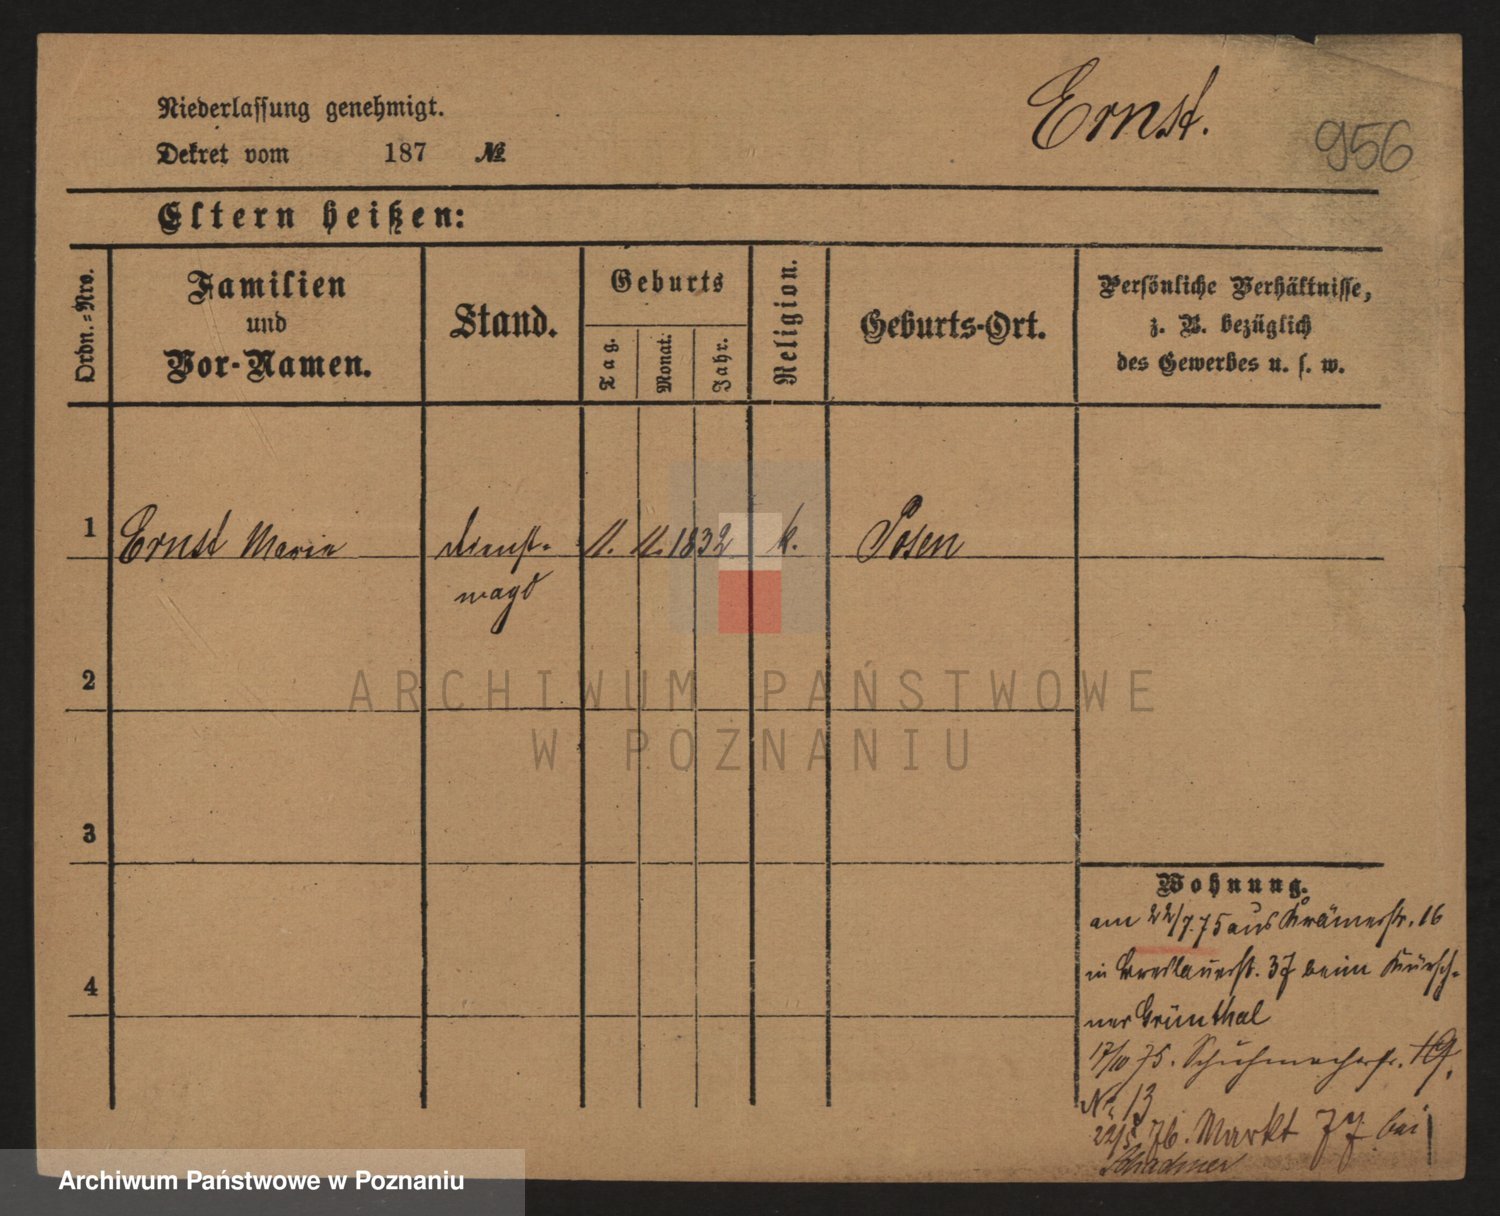 Niederlassung genehmigt.
Dekret vom 187 №
Ernst.
956
Eltern heißen:
Ordn.-Nro.
Familien
und
Vor-Namen.
Stand.
Geburts
Tag.
Monat.
Jahr.
Religion.
Geburts-Ort.
Persönliche Verhältnisse,
z. B. bezüglich
des Gewerbes u. s. w.
1 Ernst Marie Dienst- 11. 11. 1832 k. Posen
magd
2
3
4
ARCHIWUM PAŃSTWOWE
W POZNANIU
Wohnung.
am 22/7.75 aus Krämerstr. 16
in Breslauerst. 37 beim Kürsch-
ner Grünthal
17/10 75. Schuhmacherstr. 19.
No 13
22/5. 76. Markt 77 bei
Archiwum Państwowe w Poznaniu